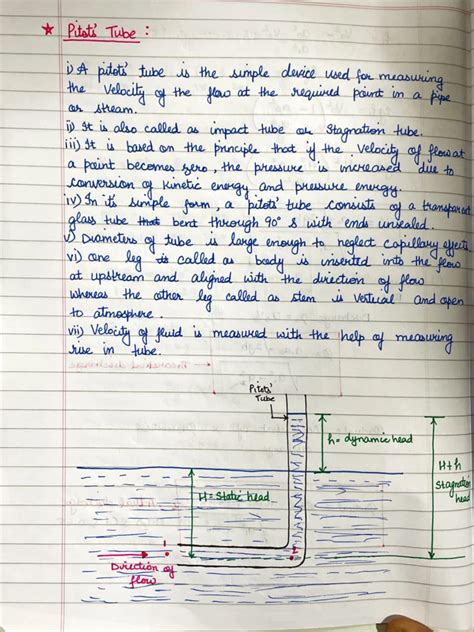 ★ Pitot's Tube :
i) A pitot's tube is the simple device used for measuring
the Velocity of the flow at the required point in a pipe
or stream.
ii) It is also called as impact tube or Stagnation tube.
iii) It is based on the principle that if the Velocity of flow at
a point becomes zero, the pressure is increased due to
conversion of Kinetic energy and pressure energy.
iv) In its simple form, a pitot's tube consists of a transparent
glass tube bent through 90° & with ends unsealed.
v) Diameters of tube is large enough to neglect capillary effects
vi) One leg is called as body is inserted into the flow
at upstream and aligned with the direction of flow
whereas the other leg called as stem is vertical and open
to atmosphere.
vii) Velocity of fluid is measured with the help of measuring
rise in tube.
Pitots'
Tube
h = dynamic head
H+h
Stagnation
head
H = Static head
Direction of
flow